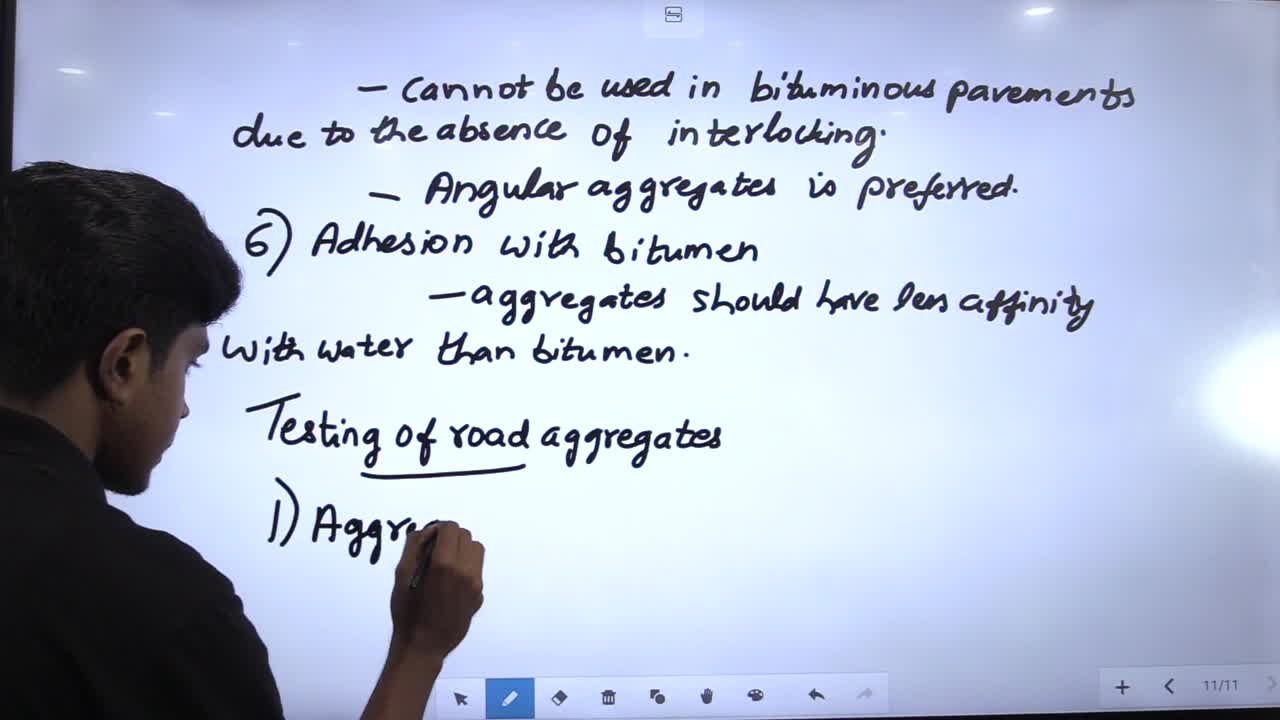 - Cannot be used in bituminous pavements
due to the absence of interlocking.
- Angular aggregates is preferred.
6) Adhesion with bitumen
- aggregates should have less affinity
with water than bitumen.
Testing of road aggregates
1) Aggre
11/11